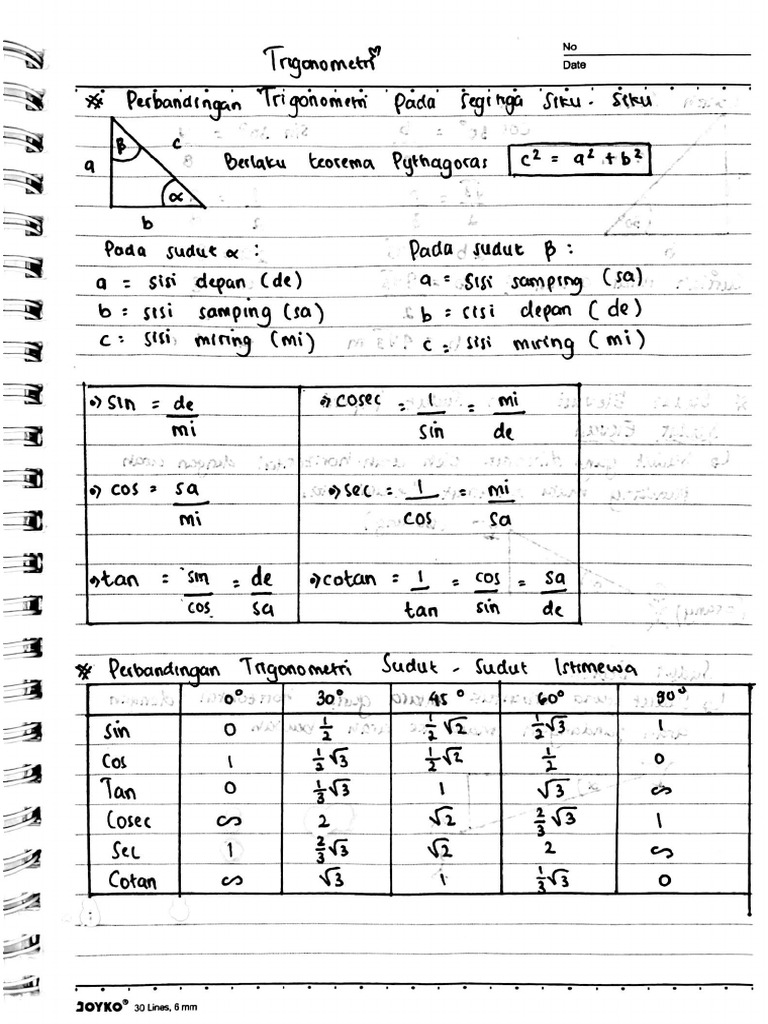 Trigonometri
No
Date
* Perbandingan Trigonometri Pada Seginga Siku - Siku
β c
a Berlaku teorema Pythagoras c² = a² + b²
α
b
Pada sudut α : Pada sudut β :
a = sisi depan (de) a = sisi samping (sa)
b = sisi samping (sa) b = sisi depan (de)
c = sisi miring (mi) c = sisi miring (mi)
sin = de/mi cosec = 1/sin = mi/de
cos = sa/mi sec = 1/cos = mi/sa
tan = sin/cos = de/sa cotan = 1/tan = cos/sin = sa/de
* Perbandingan Trigonometri Sudut - Sudut Istimewa
0° 30° 45° 60° 90°
sin 0 1/2 1/2√2 1/2√3 1
Cos 1 1/2√3 1/2√2 1/2 0
Tan 0 1/3√3 1 √3 ∞
Cosec ∞ 2 √2 2/3√3 1
Sec 1 2/3√3 √2 2 ∞
Cotan ∞ √3 1 1/3√3 0
JOYKO® 30 Lines, 6 mm